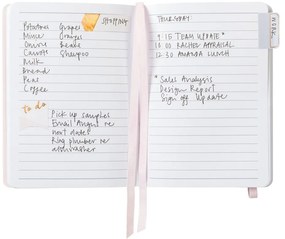 SHOPPING
Potatoes Grapes
Mince Oranges
Carrots Shampoo
Milk
Bread
Peas
Coffee
to do
Pick up samples
Email Angus re
next dates
Ring plumber re
dishwasher
THURSDAY
9:15 TEAM UPDATE*
RACHEL APPRAISAL
12:30 AMANDA LUNCH
*Sales Analysis
Design Report
Sign off Update